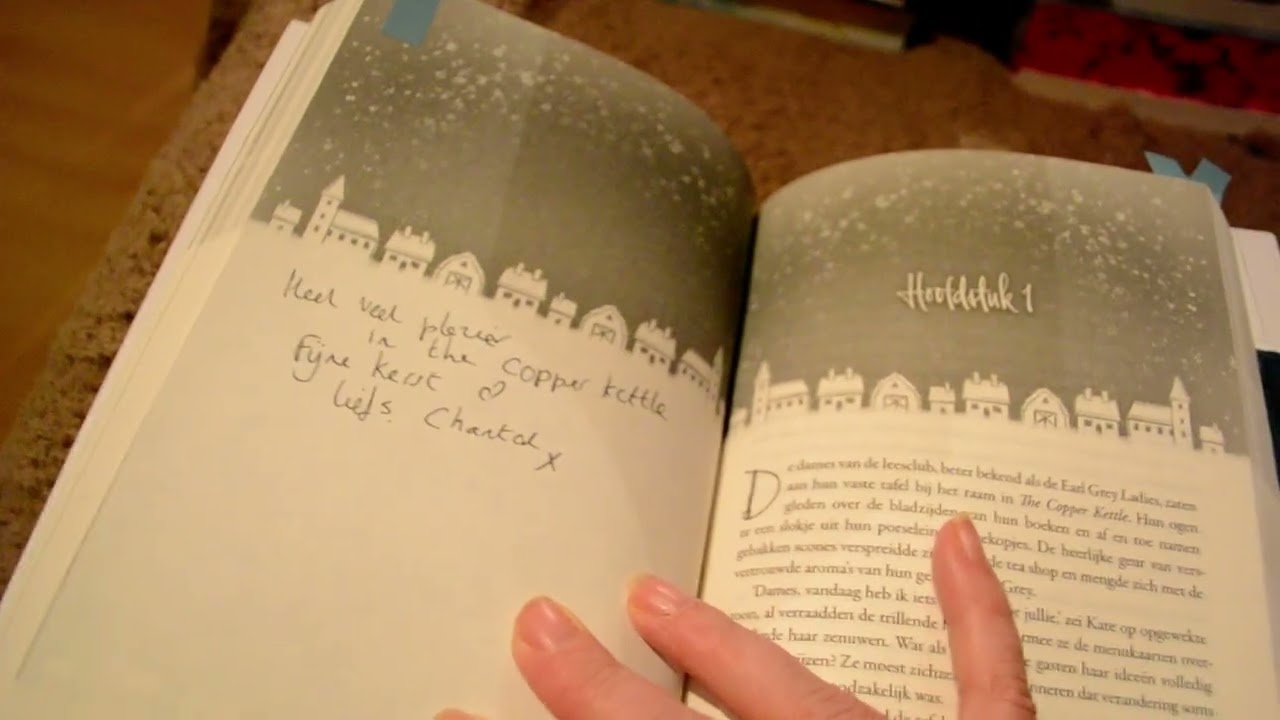 Heel veel plezier
in the copper kettle
Fijne kerst ♡
liefs. Chantal
x
Hoofdstuk 1
De dames van de leesclub, beter bekend als de Earl Grey Ladies, zaten
aan hun vaste tafel bij het raam in The Copper Kettle. Hun ogen
gleden over de bladzijden van hun boeken en af en toe namen
ze een slokje uit hun porseleinen theekopjes. De heerlijke geur van vers-
gebakken scones verspreidde de tea shop en mengde zich met de
vertrouwde aroma's van hun Grey.
'Dames, vandaag heb ik iets jullie,' zei Kate op opgewekte
toon, al verraadden de trillende
haar zenuwen. War als ze de menukaarten over-
Ze moest zichze gasten haar ideeën volledig
dat verandering soms
noodzakelijk was.